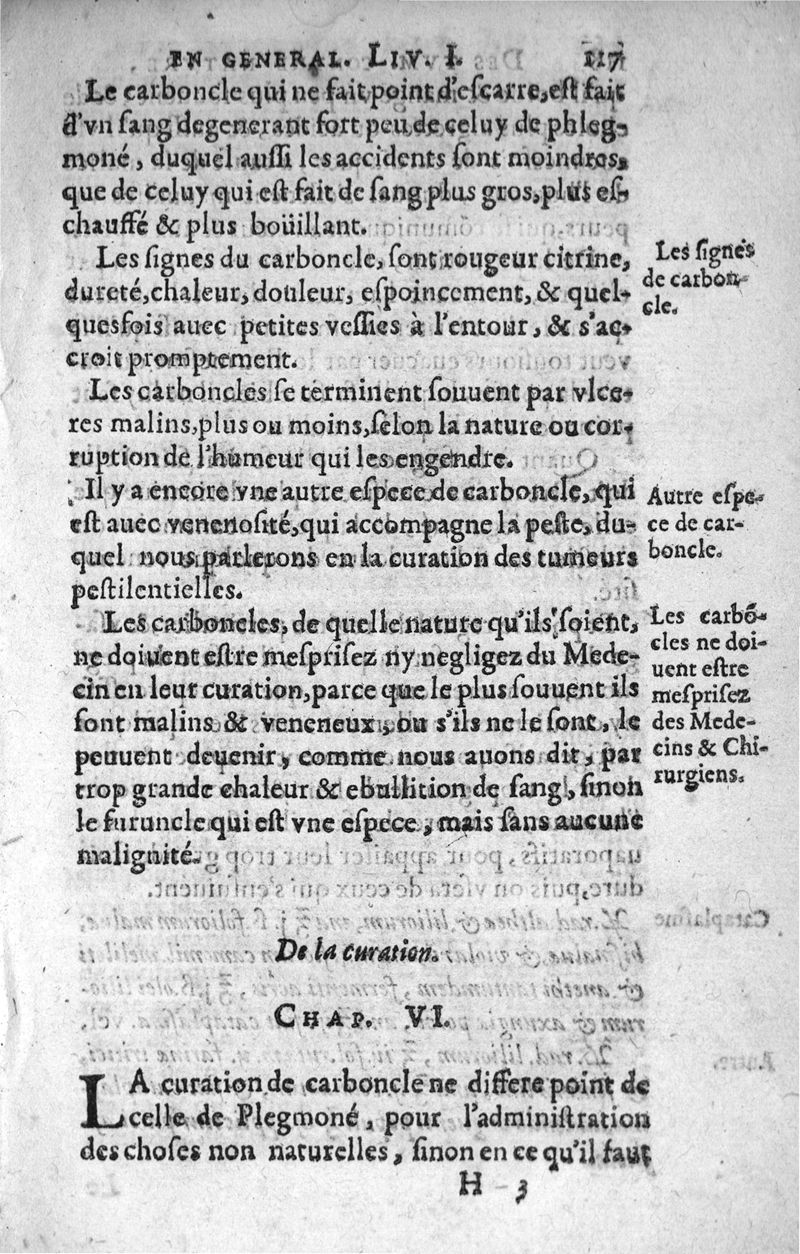 EN GENERAL. LIV. I. 117
Le carboncle qui ne fait point d'eſcarre, eſt fait
d'vn ſang degenerant fort peu de celuy de phleg-
moné, duquel auſſi les accidents ſont moindres,
que de celuy qui eſt fait de ſang plus gros, plus eſ-
chauffé & plus boüillant.
Les ſignes du carboncle, ſont rougeur citrine,
dureté, chaleur, douleur, eſpoincement, & quel-
quesfois auec petites veſſies à l'entour, & s'ac-
croit promptement.
Les ſignes
de carbon-
cle.
Les carboncles ſe terminent ſouuent par vlce-
res malins, plus ou moins, ſelon la nature ou cor-
ruption de l'humeur qui les engendre.
Il y a encore vne autre eſpece de carboncle, qui
eſt auec venenoſité, qui accompagne la peſte, du-
quel nous parlerons en la curation des tumeurs
peſtilentielles.
Autre eſpe-
ce de car-
boncle.
Les carboncles, de quelle nature qu'ils ſoient,
ne doiuent eſtre meſpriſez ny negligez du Mede-
cin en leur curation, parce que le plus ſouuent ils
ſont malins & veneneux, ou s'ils ne le ſont, le
peuuent deuenir, comme nous auons dit, par
trop grande chaleur & ebullition de ſang, ſinon
le furuncle qui eſt vne eſpece, mais ſans aucune
malignité.
Les carbõ-
cles ne doi-
uent eſtre
meſpriſez
des Mede-
cins & Chi-
rurgiens.
De la curation.
CHAP. VI.
LA curation de carboncle ne differe point de
celle de Plegmoné, pour l'adminiſtration
des choſes non naturelles, ſinon en ce qu'il faut
H 3